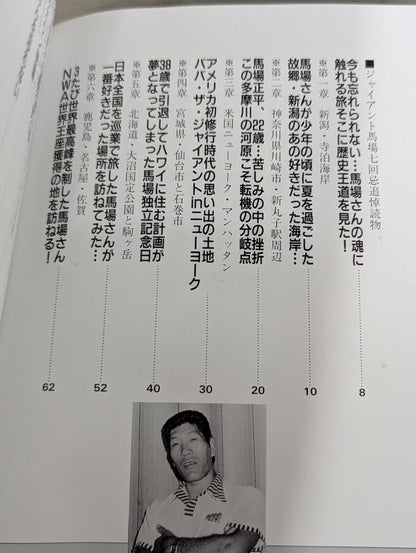 ■ジャイアント馬場七回忌追悼読物
今も忘れられない…馬場さんの魂に
触れる旅そこに歴史王道を見た!
8
※第一章 新潟・寺泊海岸
馬場さんが少年の頃に夏を過ごした
故郷・新潟のあの好きだった海岸…
10
※第二章 神奈川県川崎市・新丸子駅周辺
馬場正平、22歳…苦しみの中の挫折
この多摩川の河原こそ転機の分岐点
20
※第三章 米国ニューヨーク・マンハッタン
アメリカ初修行時代の思い出の土地
ババ・ザ・ジャイアントinニューヨーク
30
※第四章 宮城県・仙台市と石巻市
38歳で引退してハワイに住む計画が
夢となってしまった馬場独立記念日
40
※第五章 北海道・大沼国定公園と駒ヶ岳
日本全国を巡業で旅した馬場さんが
一番好きだった場所を訪ねてみた…
52
※第六章 鹿児島・名古屋・佐賀
3たび世界最高峰を制した馬場さん
NWA世界王座獲得の地を訪ねる!
62